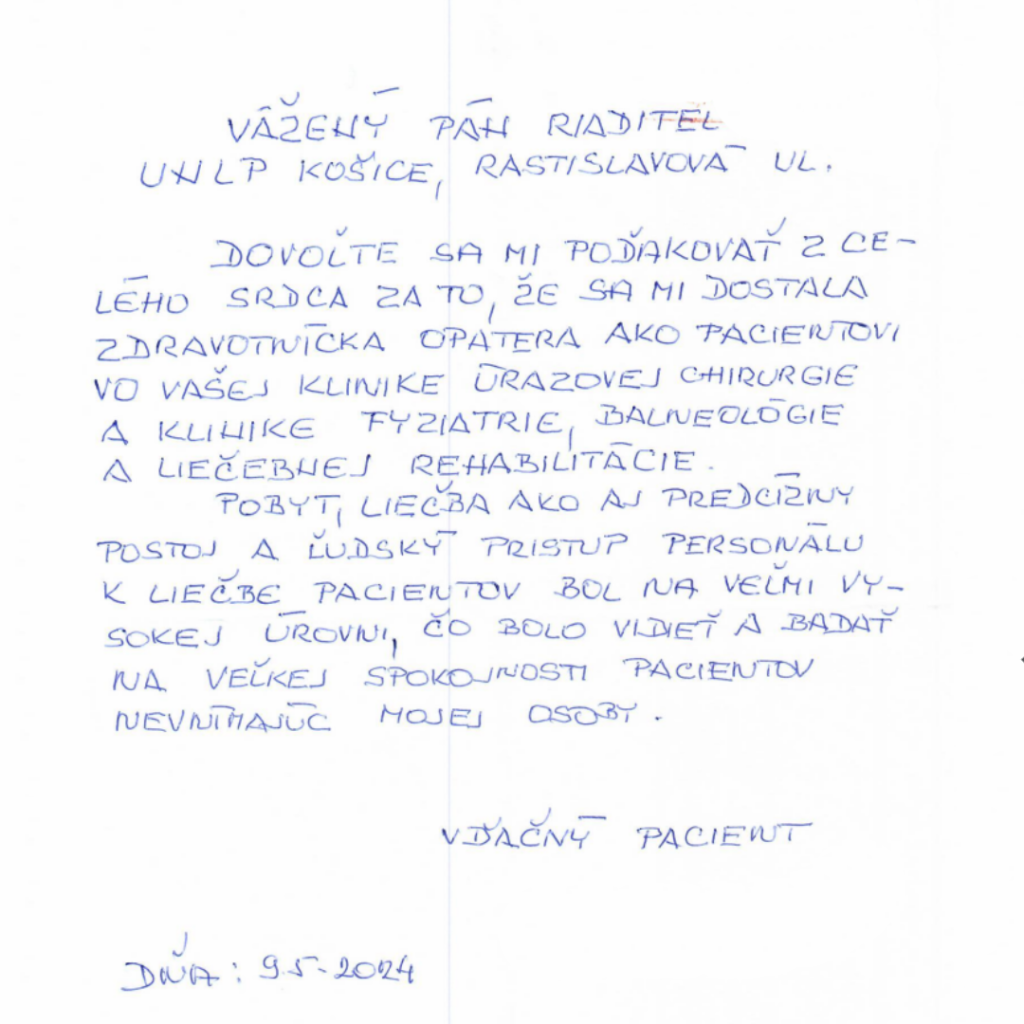 VÁŽENÝ PÁN RIADITEL
UNLP KOŠICE, RASTISLAVOVÁ UL.
DOVOĽTE SA MI POĎAKOVAŤ Z CE-
LÉHO SRDCA ZA TO, ŽE SA MI DOSTALA
ZDRAVOTNÍCKA OPATERA AKO PACIENTOVI
VO VAŠEJ KLINIKE ÚRAZOVEJ CHIRURGIE
A KLINIKE FYZIATRIE, BALNEOLÓGIE
A LIEČEBNEJ REHABILITÁCIE.
POBYT, LIEČBA AKO AJ PREDCÍZNY
POSTOJ A ĽUDSKÝ PRISTUP PERSONÁLU
K LIEČBE PACIENTOV BOL NA VEĽMI VY-
SOKEJ ÚROVNI, ČO BOLO VIDIEŤ A BADAŤ
NA VEĽKEJ SPOKOJNOSTI PACIENTOV
NEVNÍMAJÚC MOJEJ OSOBY.
VĎAČNÝ PACIENT
DŇA: 9.5-2024